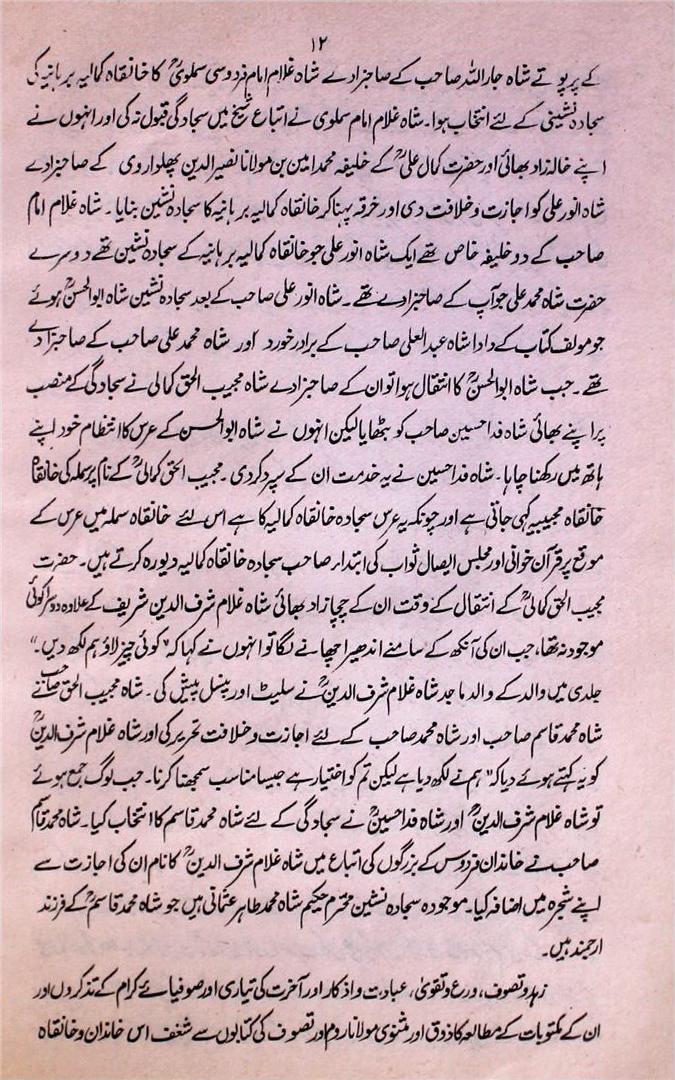 ۱۲
کے پرپوتے شاہ جار اللہ صاحب کے صاحبزادے شاہ غلام امام فردوسی سملویؒ کا خانقاہ کمالیہ برہانیہ کی
سجادہ نشینی کے لئے انتخاب ہوا۔ شاہ غلام امام سملوی نے اتباع شیخ میں سجادگی قبول نہ کی اور انہوں نے
اپنے خالہ زاد بھائی اور حضرت کمال علیؒ کے خلیفہ محمد امین بن مولانا نصیر الدین پھلواروی کے صاحبزادے
شاہ انور علی کو اجازت و خلافت دی اور خرقہ پہنا کر خانقاہ کمالیہ برہانیہ کا سجادہ نشین بنایا۔ شاہ غلام امام
صاحب کے دو خلیفہ خاص تھے ایک شاہ انور علی جو خانقاہ کمالیہ برہانیہ کے سجادہ نشین تھے دوسرے
حضرت شاہ محمد علی جو آپ کے صاحبزادے تھے۔ شاہ انور علی صاحب کے بعد سجادہ نشین شاہ ابوالحسنؒ ہوئے
جو مولف کتاب کے دادا شاہ عبد العلی صاحب کے برادر خورد اور شاہ محمد علی صاحب کے صاحبزادے
تھے۔ جب شاہ ابوالحسنؒ کا انتقال ہوا تو ان کے صاحبزادے شاہ مجیب الحق کمالی نے سجادگی کے منصب
پر اپنے بھائی شاہ فدا حسین صاحب کو بٹھایا لیکن انہوں نے شاہ ابوالحسن کے عرس کا انتظام خود اپنے
ہاتھ میں رکھنا چاہا۔ شاہ فدا حسین نے یہ خدمت ان کے سپرد کر دی۔ مجیب الحق کمالیؒ کے نام پر سملہ کی خانقاہ
خانقاہ مجیبیہ کہی جاتی ہے اور چونکہ یہ عرس سجادہ خانقاہ کمالیہ کا ہے اس لئے خانقاہ سملہ میں عرس کے
موقع پر قرآن خوانی اور مجلس ایصال ثواب کی ابتدا، صاحب سجادہ خانقاہ کمالیہ دیورہ کرتے ہیں۔ حضرت
مجیب الحق کمالیؒ کے انتقال کے وقت ان کے چچا زاد بھائی شاہ غلام شرف الدین شریف کے علاوہ دوسرا کوئی
موجود نہ تھا، جب ان کی آنکھ کے سامنے اندھیرا چھانے لگا تو انہوں نے کہا کہ "کوئی چیز لاؤ ہم لکھ دیں۔"
جلدی میں والد کے والد ماجد شاہ غلام شرف الدینؒ نے سلیٹ اور پنسل پیش کی۔ شاہ مجیب الحق صاحب نے
شاہ محمد قاسم صاحب اور شاہ محمد صاحب کے لئے اجازت و خلافت تحریر کی اور شاہ غلام شرف الدینؒ
کو یہ کہتے ہوئے دیا کہ "ہم نے لکھ دیا ہے لیکن تم کو اختیار ہے جیسا مناسب سمجھنا کرنا۔ جب لوگ جمع ہوئے
تو شاہ غلام شرف الدینؒ اور شاہ فدا حسینؒ نے سجادگی کے لئے شاہ محمد قاسم کا انتخاب کیا۔ شاہ محمد قاسم
صاحب نے خاندان فردوس کے بزرگوں کی اتباع میں شاہ غلام شرف الدینؒ کا نام ان کی اجازت سے
اپنے شجرہ میں اضافہ کیا۔ موجودہ سجادہ نشین محترم حکیم شاہ محمد طاہر عثمانی ہیں جو شاہ محمد قاسمؒ کے فرزند
ارجمند ہیں۔
زہد و تصوف، ورع و تقویٰ، عبادت و اذکار اور آخرت کی تیاری اور صوفیائے کرام کے تذکروں اور
ان کے مکتوبات کے مطالعہ کا ذوق اور مثنوی مولانا روم اور تصوف کی کتابوں سے شغف اس خاندان و خانقاہ